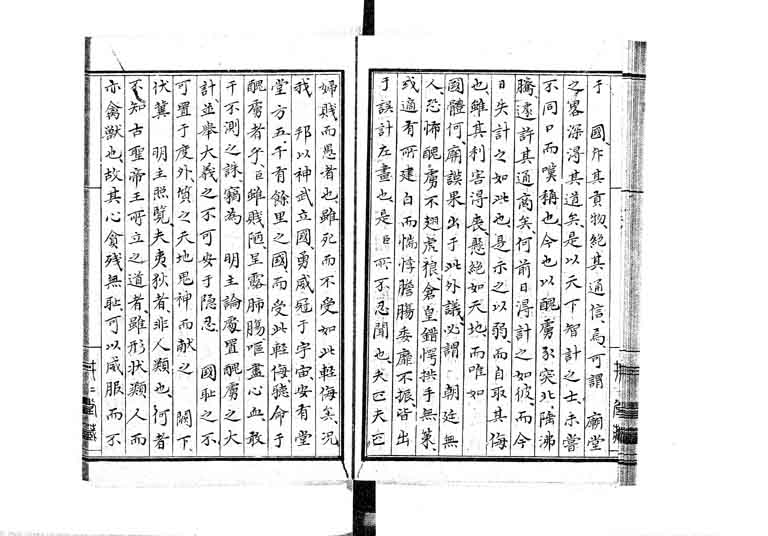 于　國、斥其貢物、絕其通信、焉可謂　廟堂
之畧、深得其道矣、是以天下智計之士、未嘗
不同口而嘆稱也、今也以醜虜豕突北陲沸
騰、遽許其通商矣、何前日得計之如彼、而今
日失計之如此也、是示之以弱、而自取其侮
也、雖其利害得喪、懸絕如天地、而唯如
國體何、廟謨果出于此、外議必謂　朝廷無
人、恐怖醜虜不翅虎狼、倉皇錯愕、拱手無策、
或適有所建白、而惴悸膽膓、委靡不振、皆出
于誤計左畫也、是臣所不忍聞也、夫匹夫匹
婦賤而愚者也、雖死而不受如此輕侮矣、況
我　邦以神武立國、勇威冠于宇宙、安有堂
堂方五千有餘里之國、而受此輕侮、聽命于
醜虜者乎、臣雖賤陋、呈露肺膓、嘔盡心血、敢
干不測之誅、竊為　明主論處置醜虜之大
計、並舉大義之不可安于隱忍　國恥之不
可置于度外、質之天地鬼神、而獻之　闕下、
伏冀　明主照覽、夫夷狄者、非人類也、何者
不知古聖帝王所立之道者、雖形狀類人、而
亦禽獸也、故其心貪殘無恥、可以威服、而不